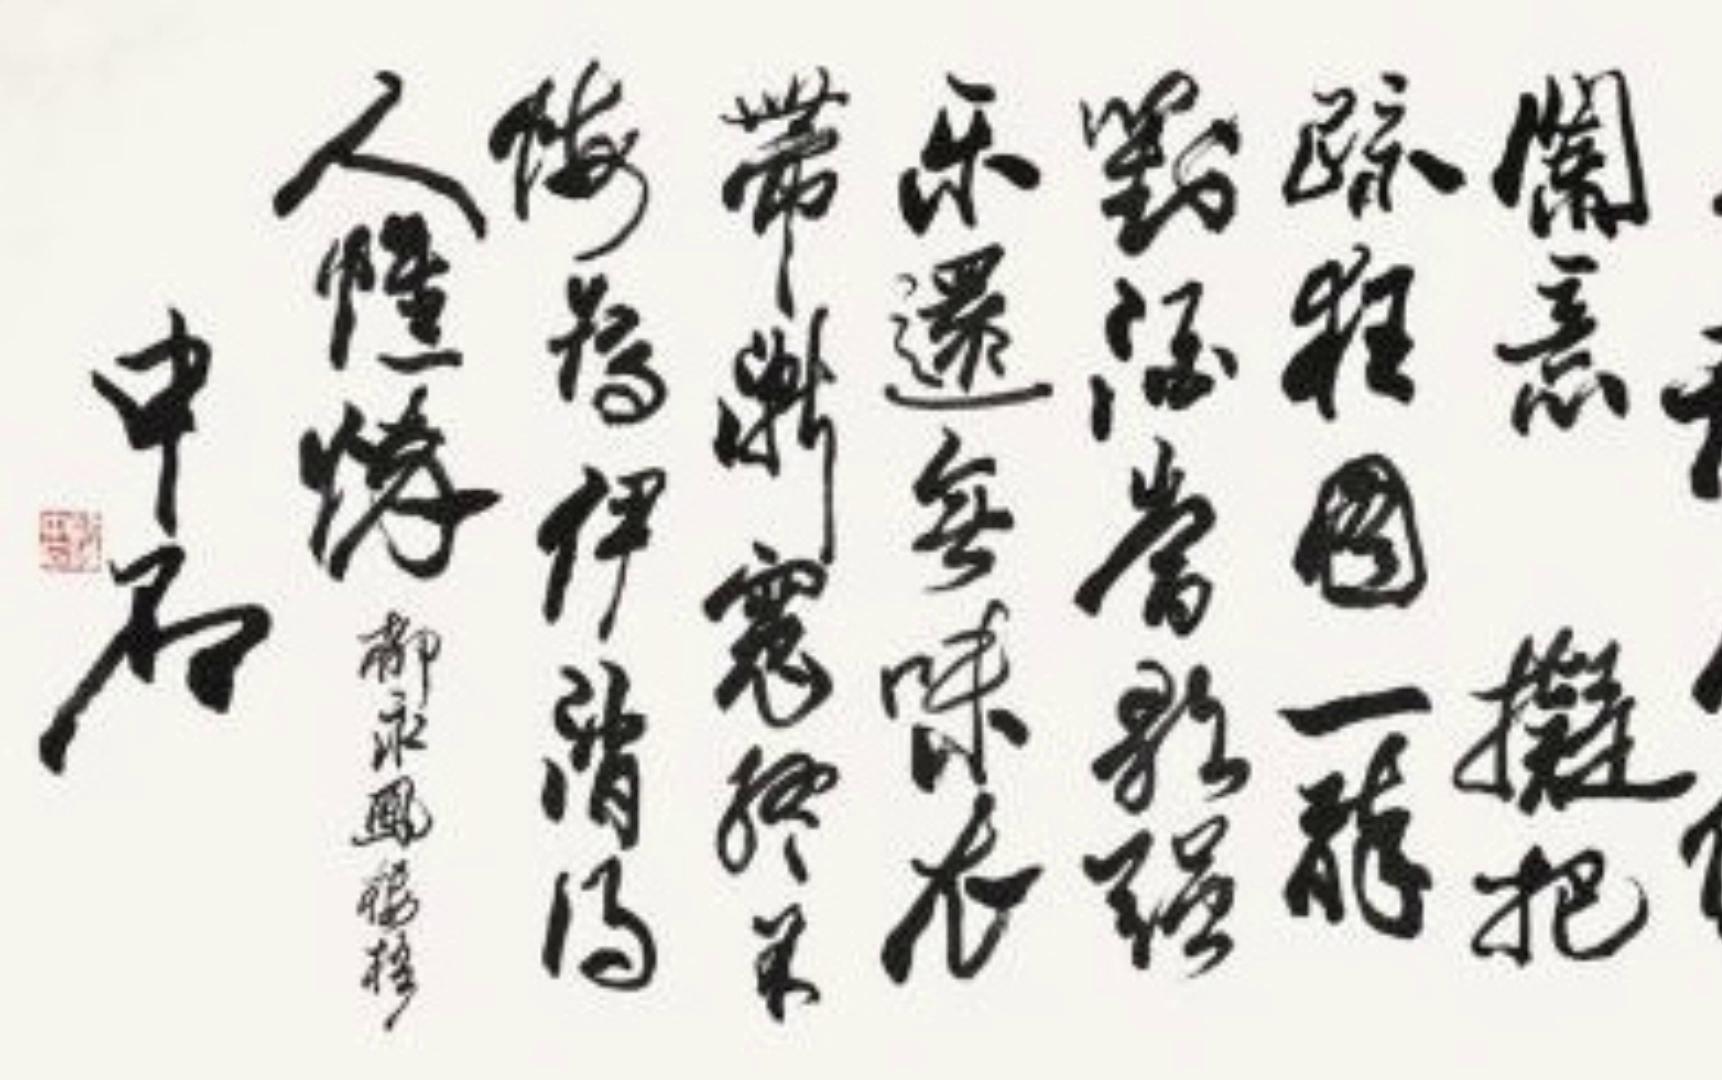 闌意 擬把
疎狂图一醉
對酒當歌強
乐還無味衣
帶漸寬終不
悔為伊消得
人憔悴 柳永鳳棲梧
中石